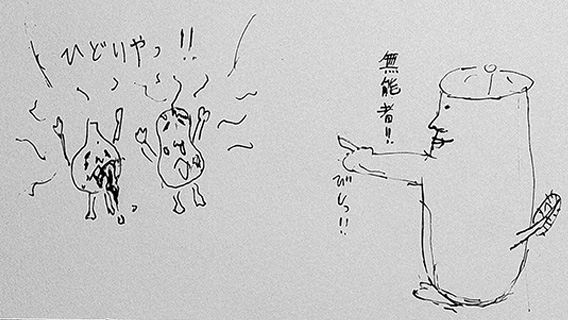 ひどりやっ!!
無能者!!
びしっ!!